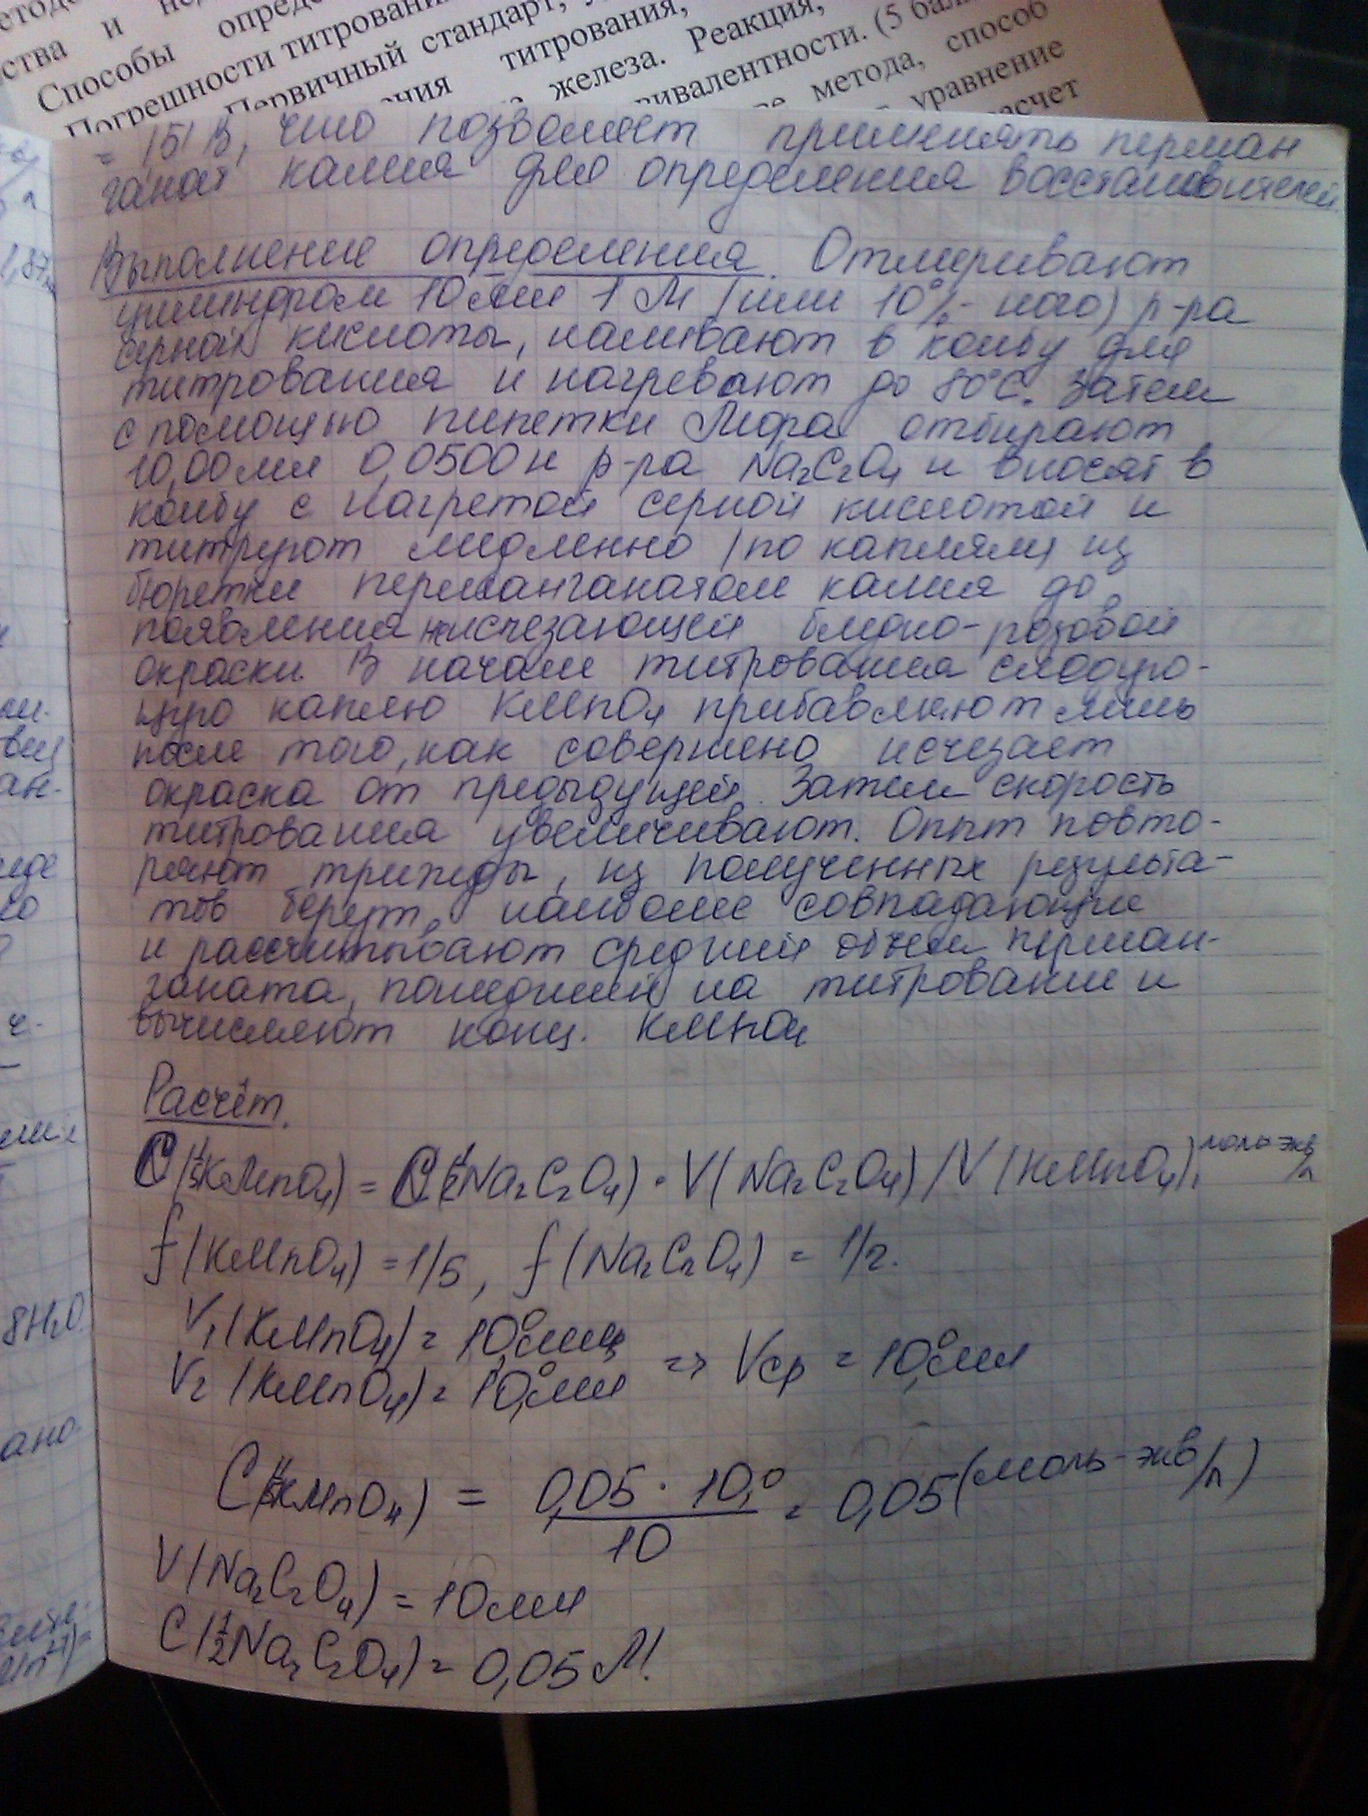 ства и
Способы
Погрешности титрования
Первичный стандарт,
титрования,
железа. Реакция,
эквивалентности. (5
метода, способ
уравнение
расчет
= 1,51 В, что позволяет применять перман
ганат калия для определения восстановителей.
Выполнение определения. Отмеривают
цилиндром 10 мл 1 М (или 10%-ного) р-ра
серной кислоты, наливают в колбу для
титрования и нагревают до 80°C. Затем
с помощью пипетки Мора отбирают
10,00 мл 0,0500 н р-ра Na₂C₂O₄ и вносят в
колбу с нагретой серной кислотой и
титруют медленно (по каплям) из
бюретки перманганатом калия до
появления неисчезающей бледно-розовой
окраски. В начале титрования следую-
щую каплю KMnO₄ прибавляют лишь
после того, как совершено исчезает
окраска от предыдущей. Затем скорость
титрования увеличивают. Опыт повто-
ряют трижды, из полученных результа-
тов берут, наиболее совпадающие
и рассчитывают средний объем перман-
ганата, пошедший на титрование и
вычисляют конц. KMnO₄
Расчёт.
C(1/5KMnO₄) = C(1/2Na₂C₂O₄) · V(Na₂C₂O₄) / V(KMnO₄), моль-экв/л
f(KMnO₄) = 1/5, f(Na₂C₂O₄) = 1/2.
V₁(KMnO₄) = 10,0 мл
V₂(KMnO₄) = 10,0 мл => Vср = 10,0 мл
C(1/5KMnO₄) = 0,05 · 10,0 / 10 = 0,05 (моль-экв/л)
V(Na₂C₂O₄) = 10 мл
C(1/2Na₂C₂O₄) = 0,05 М.
8H₂O